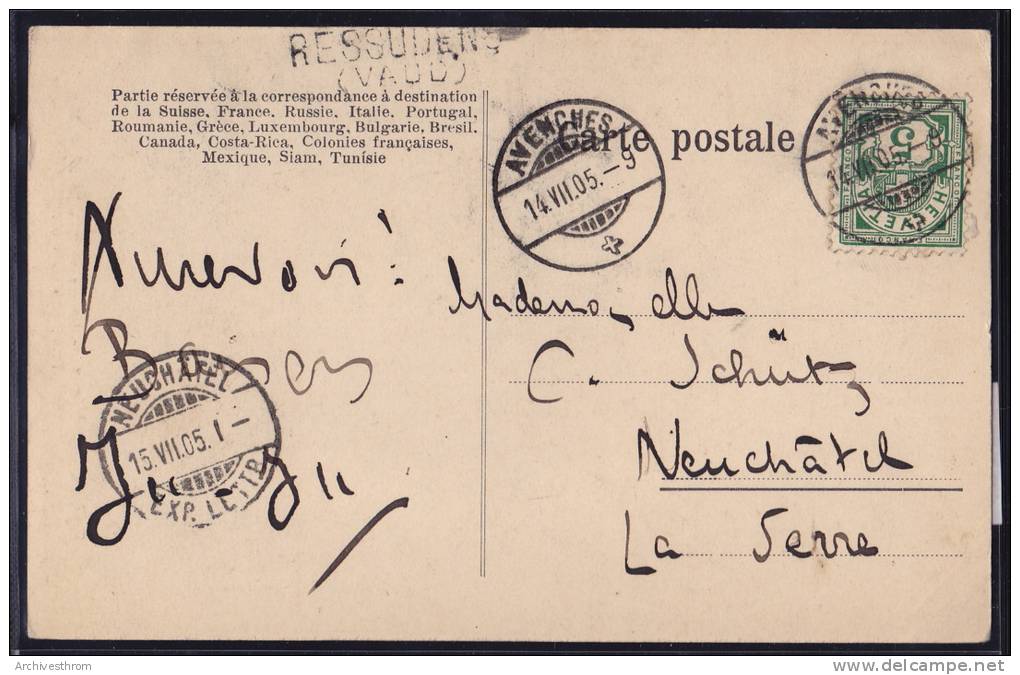 RESSUDENS
(VAUD)
Partie réservée à la correspondance à destination
de la Suisse, France, Russie, Italie, Portugal,
Roumanie, Grèce, Luxembourg, Bulgarie, Bresil,
Canada, Costa-Rica, Colonies françaises,
Mexique, Siam, Tunisie
Carte postale
AVENCHES
14.VII.05.-9
AVENCHES
14.VII.05.-9
5
HELVETIA
FRANCO
Aurevoir!
Mademoiselle
C. Schütz
Neuchâtel
La Serre
NEUCHÂTEL
15.VII.05. I-
EXP. LETTR.
Archivesthrom
www.delcampe.net